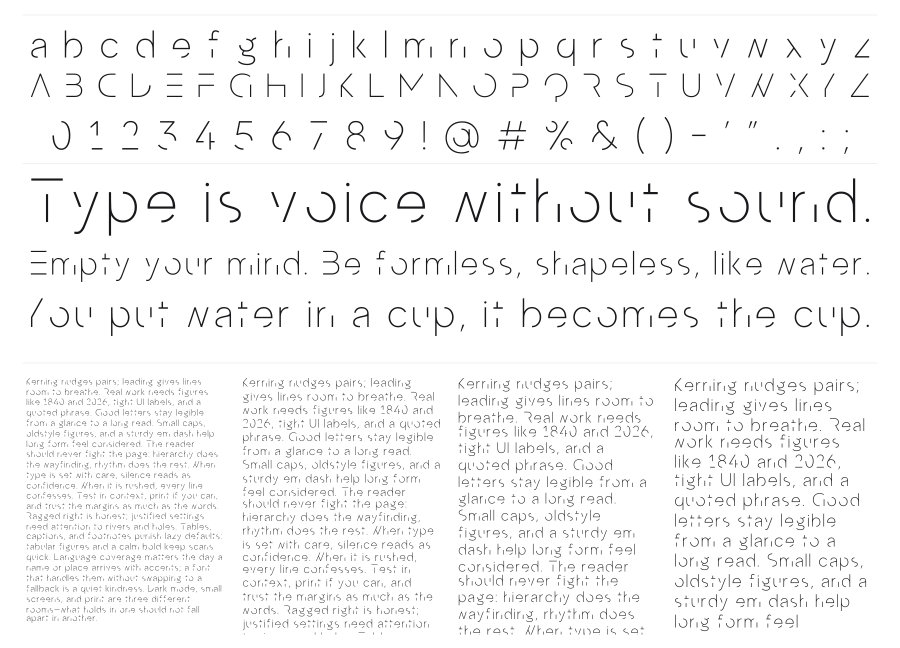 a b c d e f g h i j k l m n o p q r s t u v w x y z
A B C D E F G H I J K L M N O P Q R S T U V W X Y Z
0 1 2 3 4 5 6 7 8 9 ! @ # % & ( ) - ' " . , : ;
Type is voice without sound.
Empty your mind. Be formless, shapeless, like water.
You put water in a cup, it becomes the cup.
Kerning nudges pairs; leading gives lines
room to breathe. Real work needs figures
like 1840 and 2026, tight UI labels, and a
quoted phrase. Good letters stay legible
from a glance to a long read. Small caps,
oldstyle figures, and a sturdy em dash help
long form feel considered. The reader
should never fight the page: hierarchy does
the wayfinding, rhythm does the rest. When
type is set with care, silence reads as
confidence. When it is rushed, every line
confesses. Test in context, print if you can,
and trust the margins as much as the words.
Ragged right is honest; justified settings
need attention to rivers and holes. Tables,
captions, and footnotes punish lazy defaults;
tabular figures and a calm bold keep scans
quick. Language coverage matters the day a
name or place arrives with accents; a font
that handles them without swapping to a
fallback is a quiet kindness. Dark mode, small
screens, and print are three different
rooms—what holds in one should not fall
apart in another.
Kerning nudges pairs; leading
gives lines room to breathe. Real
work needs figures like 1840 and
2026, tight UI labels, and a quoted
phrase. Good letters stay legible
from a glance to a long read.
Small caps, oldstyle figures, and a
sturdy em dash help long form
feel considered. The reader
should never fight the page:
hierarchy does the wayfinding,
rhythm does the rest. When type
is set with care, silence reads as
confidence. When it is rushed,
every line confesses. Test in
context, print if you can, and
trust the margins as much as the
words. Ragged right is honest;
justified settings need attention
Kerning nudges pairs;
leading gives lines room to
breathe. Real work needs
figures like 1840 and 2026,
tight UI labels, and a
quoted phrase. Good
letters stay legible from a
glance to a long read.
Small caps, oldstyle
figures, and a sturdy em
dash help long form feel
considered. The reader
should never fight the
page: hierarchy does the
wayfinding, rhythm does
the rest. When type is set
Kerning nudges pairs;
leading gives lines
room to breathe. Real
work needs figures
like 1840 and 2026,
tight UI labels, and a
quoted phrase. Good
letters stay legible
from a glance to a
long read. Small caps,
oldstyle figures, and a
sturdy em dash help
long form feel